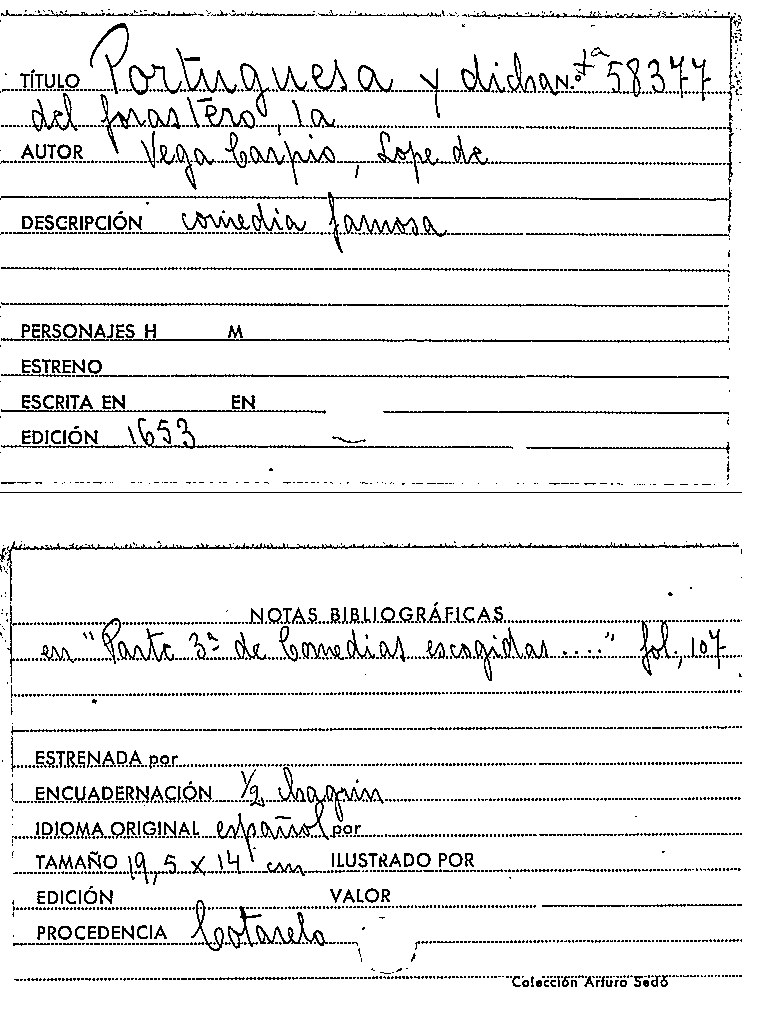 TÍTULO Portuguesa y dicha n.º 58377
del forastero, la
AUTOR Vega Carpio, Lope de
DESCRIPCIÓN comedia famosa
PERSONAJES H M
ESTRENO
ESCRITA EN EN
EDICIÓN 1653
NOTAS BIBLIOGRÁFICAS
en "Parte 3ª de Comedias escogidas ...." fol, 107
ESTRENADA por
ENCUADERNACIÓN 1/2 chagrin
IDIOMA ORIGINAL español por
TAMAÑO 19,5 x 14 cm ILUSTRADO POR
EDICIÓN VALOR
PROCEDENCIA Cotarelo
Colección Arturo Sedó